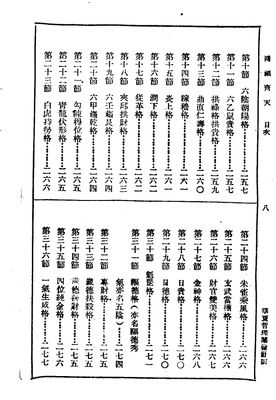 鴻福齊天　目次
八
第十節　六陰朝陽格………二五七
第十一節　六乙鼠貴格………二五八
第十二節　拱祿格拱貴格………二五九
第十三節　曲直仁壽格………二六〇
第十四節　稼穡格………二六〇
第十五節　炎上格………二六一
第十六節　潤下格………二六一
第十七節　從革格………二六二
第十八節　夾邱拱財格………二六二
第十九節　六壬趨艮格………二六三
第二十節　六甲趨乾格………二六四
第二十一節　勾陳得位格………二六五
第二十二節　青龍伏形格………二六五
第二十三節　白虎持勢格………二六六
第二十四節　朱雀乘風格………二六六
第二十五節　玄武當權格………二六七
第二十六節　財官雙美格………二六八
第二十七節　金神格………二六八
第二十八節　日貴格………二七〇
第二十九節　日德格………二七〇
第三十節　魁罡格………二七一
第三十一節　福德格（亦名福德秀
氣亦名五陰）………二七二
第三十二節　專財格………二七五
第三十三節　歲德扶殺格………二七五
第三十四節　歲德扶財格………二七六
第三十五節　四位純全格………二七六
第三十六節　一氣生成格………二七七